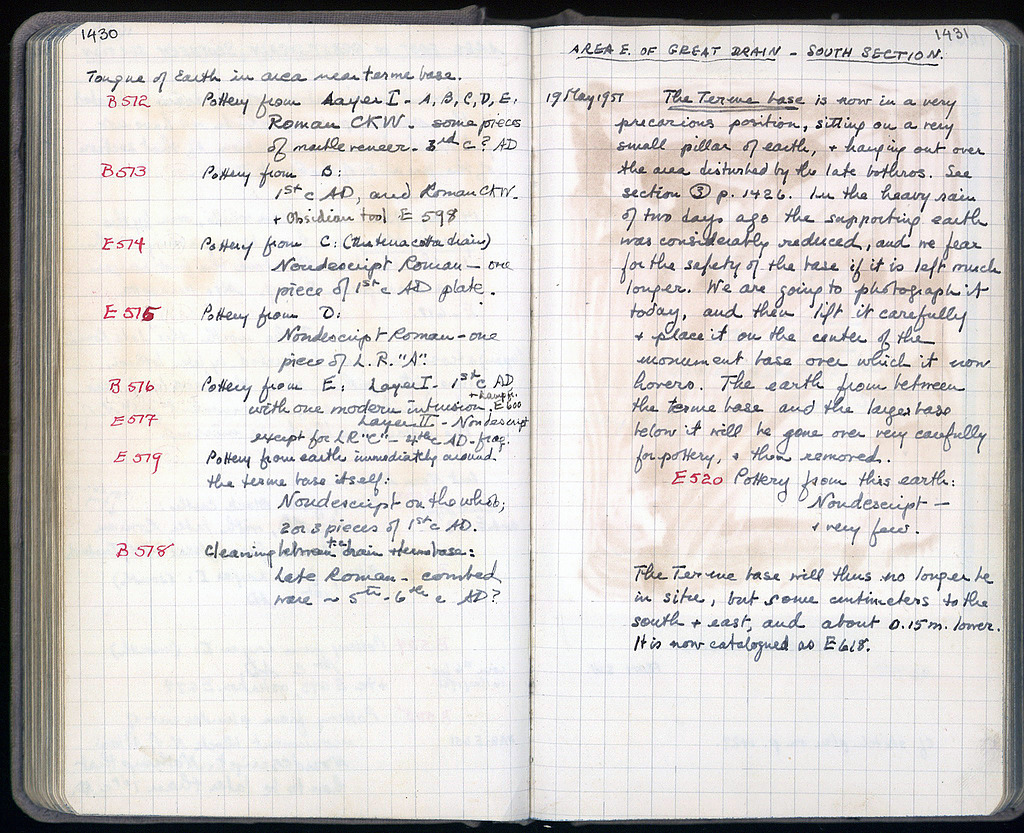 1430
Tongue of Earth in area near terme base.
B 512 Pottery from Layer I - A, B, C, D, E.
Roman CKW. some pieces
of marble veneer. 3rd c? AD
B 513 Pottery from B:
1st c AD, and Roman CKW.
+ Obsidian tool E 598
E 514 Pottery from C: (the terracotta drain)
Nondescript Roman - one
piece of 1st c AD plate.
E 515 Pottery from D:
Nondescript Roman - one
piece of L.R. "A".
B 516 Pottery from E: Layer I - 1st c AD
+ lampfr.
with one modern intrusion, E 600
E 517 Layer II - Nondescript
except for LR "C" - 4th c AD - frag.
E 519 Pottery from earth immediately around
the terme base itself:
Nondescript on the whole;
2 or 3 pieces of 1st c AD.
B 518 Cleaning between t.c. drain + terme base:
Late Roman - combed
ware ~ 5th - 6th c AD?
1431
AREA E. OF GREAT DRAIN - SOUTH SECTION.
19 May 1951 The Terme base is now in a very
precarious position, sitting on a very
small pillar of earth, + hanging out over
the area disturbed by the late bothros. See
section ③ p. 1426. In the heavy rain
of two days ago the supporting earth
was considerably reduced, and we fear
for the safety of the base if it is left much
longer. We are going to photograph it
today, and then lift it carefully
+ place it on the center of the
monument base over which it now
hovers. The earth from between
the terme base and the larger base
below it will be gone over very carefully
for pottery, + then removed.
E 520 Pottery from this earth:
Nondescript -
+ very few.
The Terme base will thus no longer be
in situ, but some centimeters to the
south + east, and about 0.15 m. lower.
It is now catalogued as E 618.